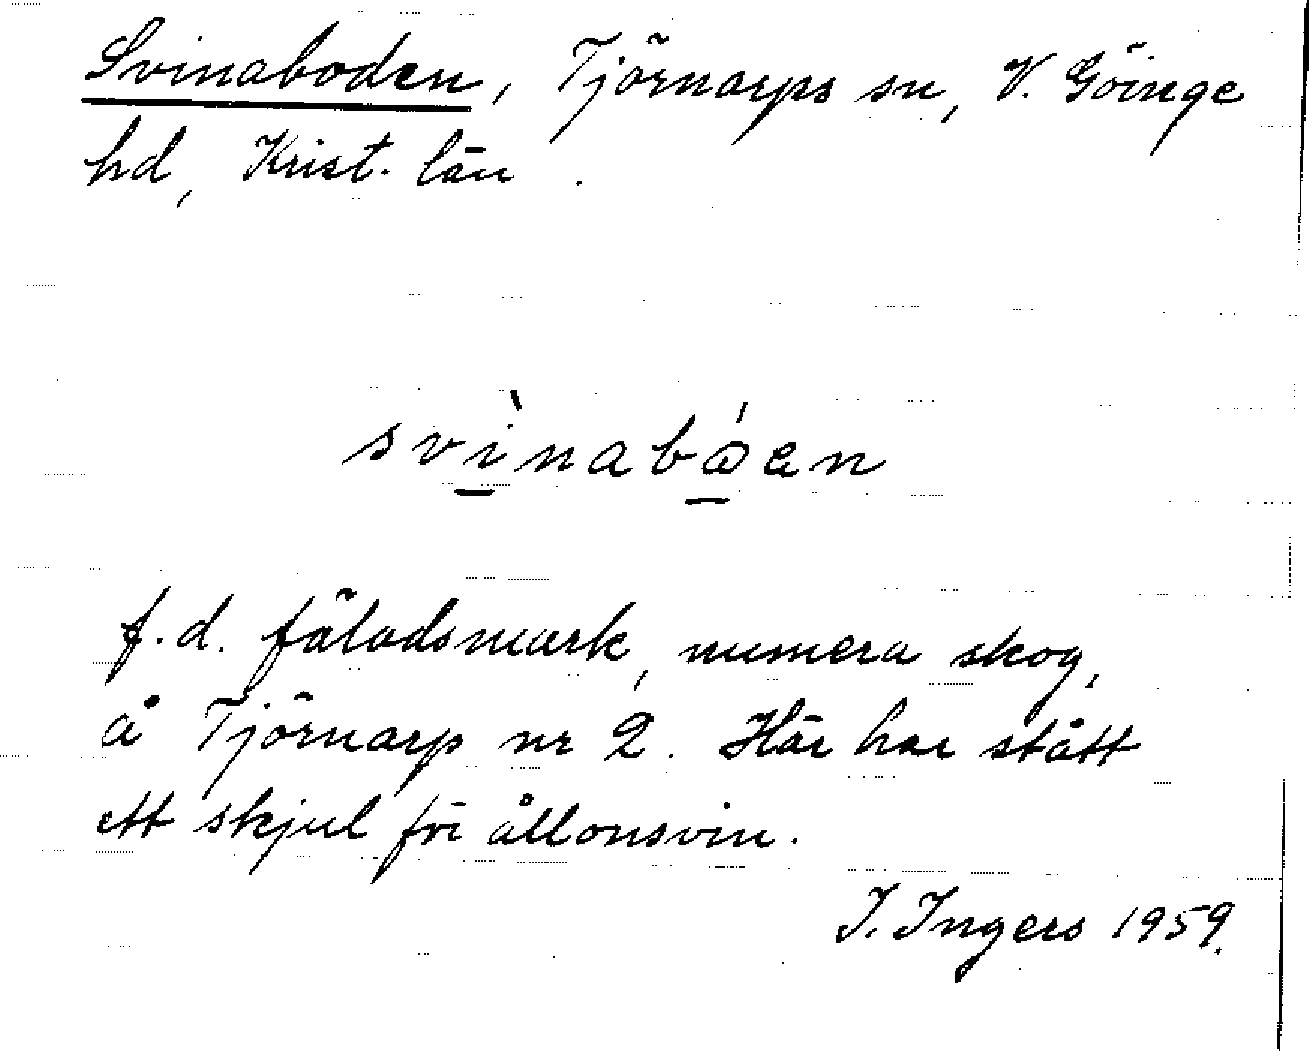 Svinaboden, Tjörnarps sn, V. Göinge
hd, Krist. län.
svìnabǻen
f.d. fäladsmark, numera skog,
å Tjörnarp nr 2. Här har stått
ett skjul för ållonsvin.
I. Ingers 1959.